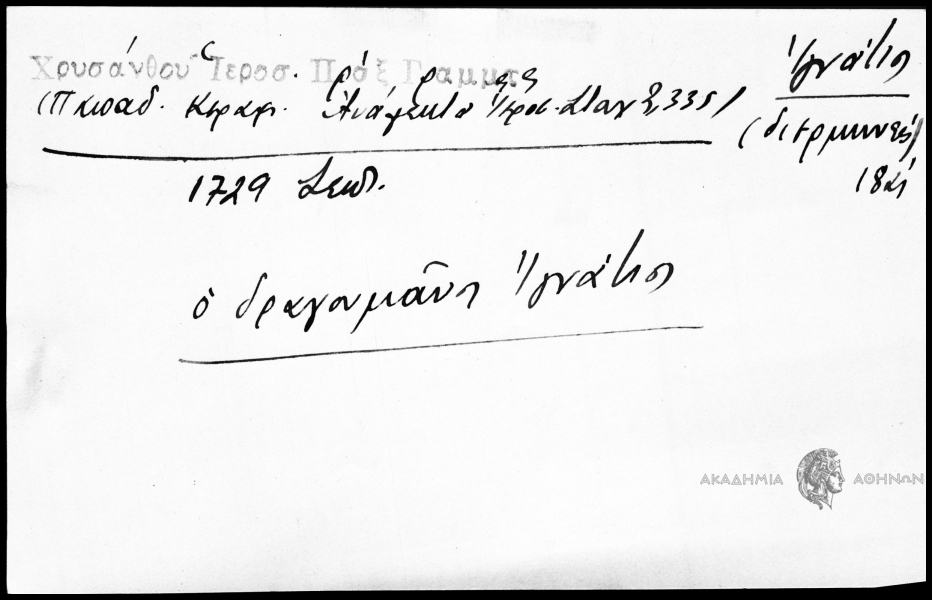 Χρυσάνθου Ἱεροσ. Πρὸς Γραμμ.
(Παπαδ. Κεραμ. Ἀνάλεκτα Ἱεροσ. Σταχ 2, 335)
Ἰγνάτιος
(διερμηνεὺς)
18
1729 Σεπτ.
ὁ δραγουμᾶνος Ἰγνάτιος
ΑΚΑΔΗΜΙΑ ΑΘΗΝΩΝ